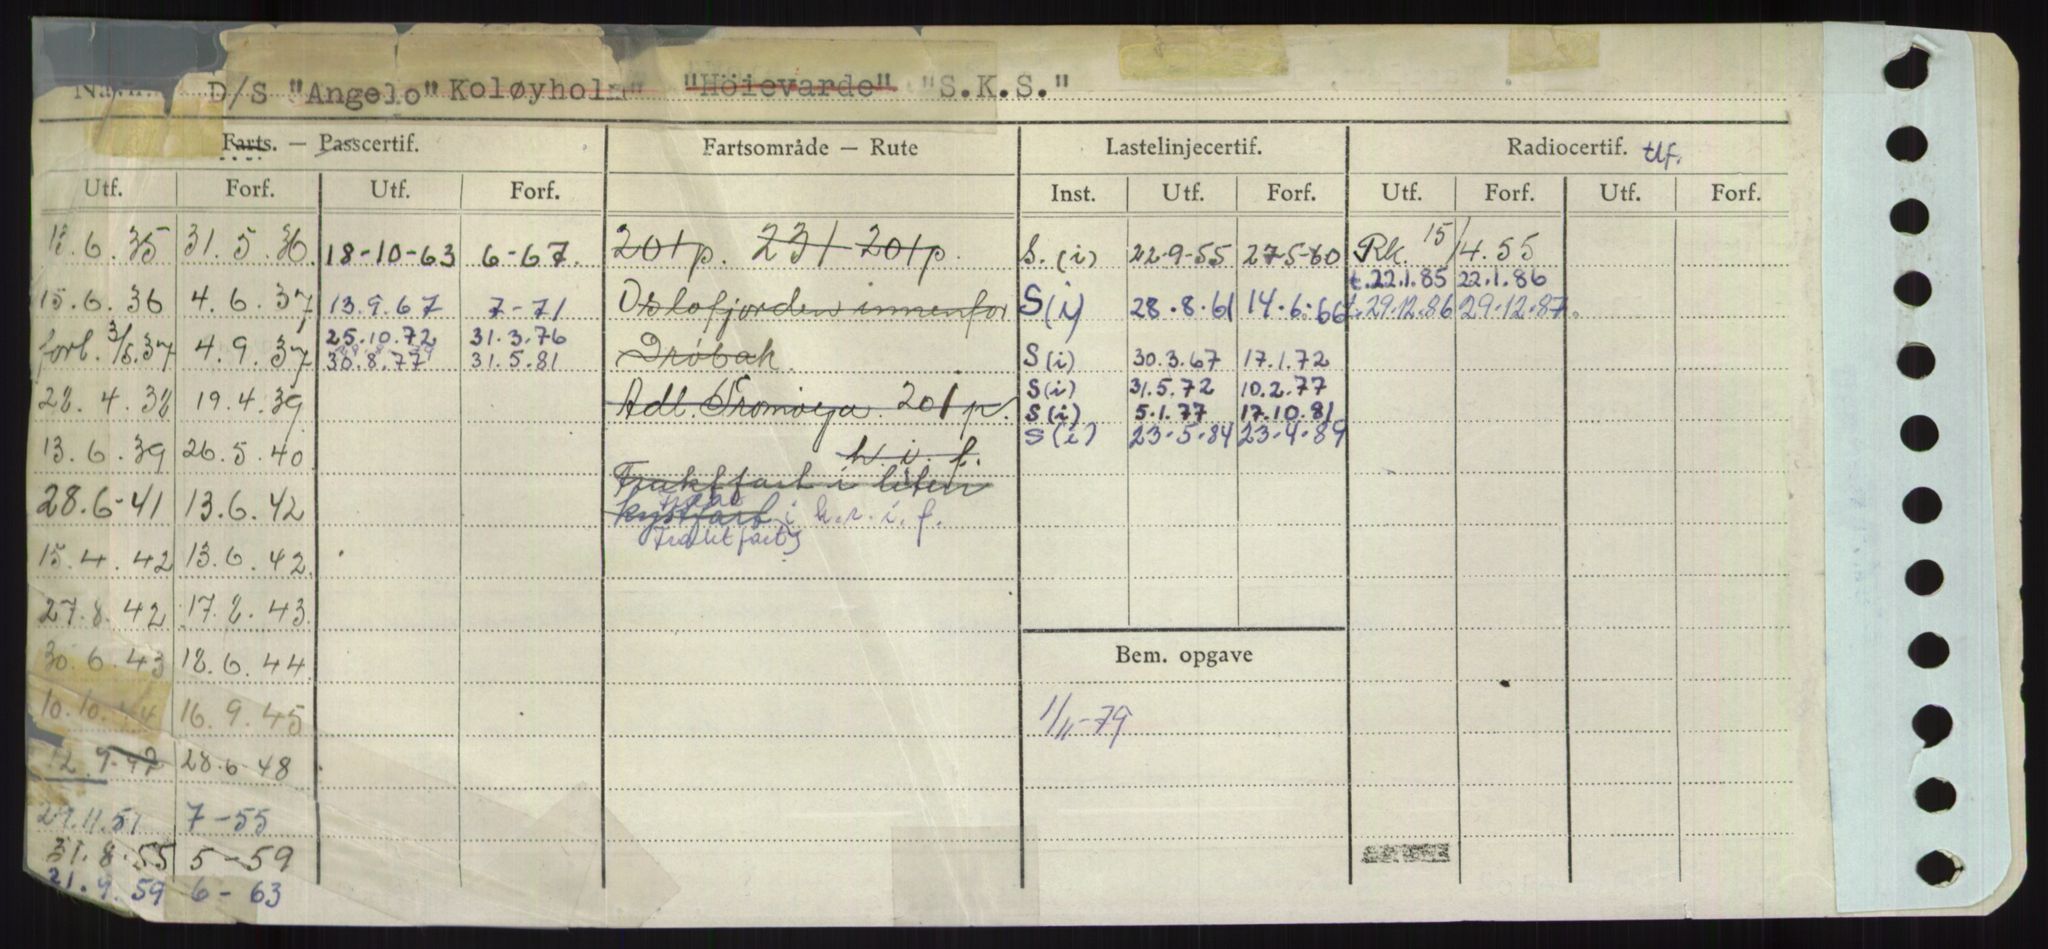 D/S "Angelo" Koløyholm" "Höievarde" "S.K.S."
Farts. — Passcertif. Fartsområde — Rute Lastelinjecertif. Radiocertif. tlf.
Utf. Forf. Utf. Forf. Inst. Utf. Forf. Utf. Forf. Utf. Forf.
13.6.35 31.5.36 18-10-63 6-67. 201p. 231 201p. S.(i) 22-9-55 27-5-60 Rk. 15/4.55
t.22.1.85 22.1.86
15.6.36 4.6.37 13.9.67 7-71 Oslofjorden innenfor S(i) 28.8.61 14.6.66 t.29.12.86 29.12.87.
25.10.72 31.3.76
forl. 3/6.37 4.9.37 30.8.77 31.5.81 Drøbak. S(i) 30.3.67 17.1.72
22.4.38 19.4.39 Adl. Tromøya. 201p. S(i) 31.5.72 10.2.77
S(i) 5.1.77 17.10.81
S(i) 23-5-84 23-4-89
13.6.39 26.5.40 h.i.f.
Fraktfart i liten
28.6-41 13.6.42 kystfart i h.r.i.f.
Fraktfart
15.4.42 13.6.42
27.8.42 17.8.43
30.6.43 18.6.44 Bem. opgave
10.10.44 16.9.45 1/11-79
12.9.47 28.6.48
29.11.51 7-55
31.8.55 5-59
21.9.59 6-63